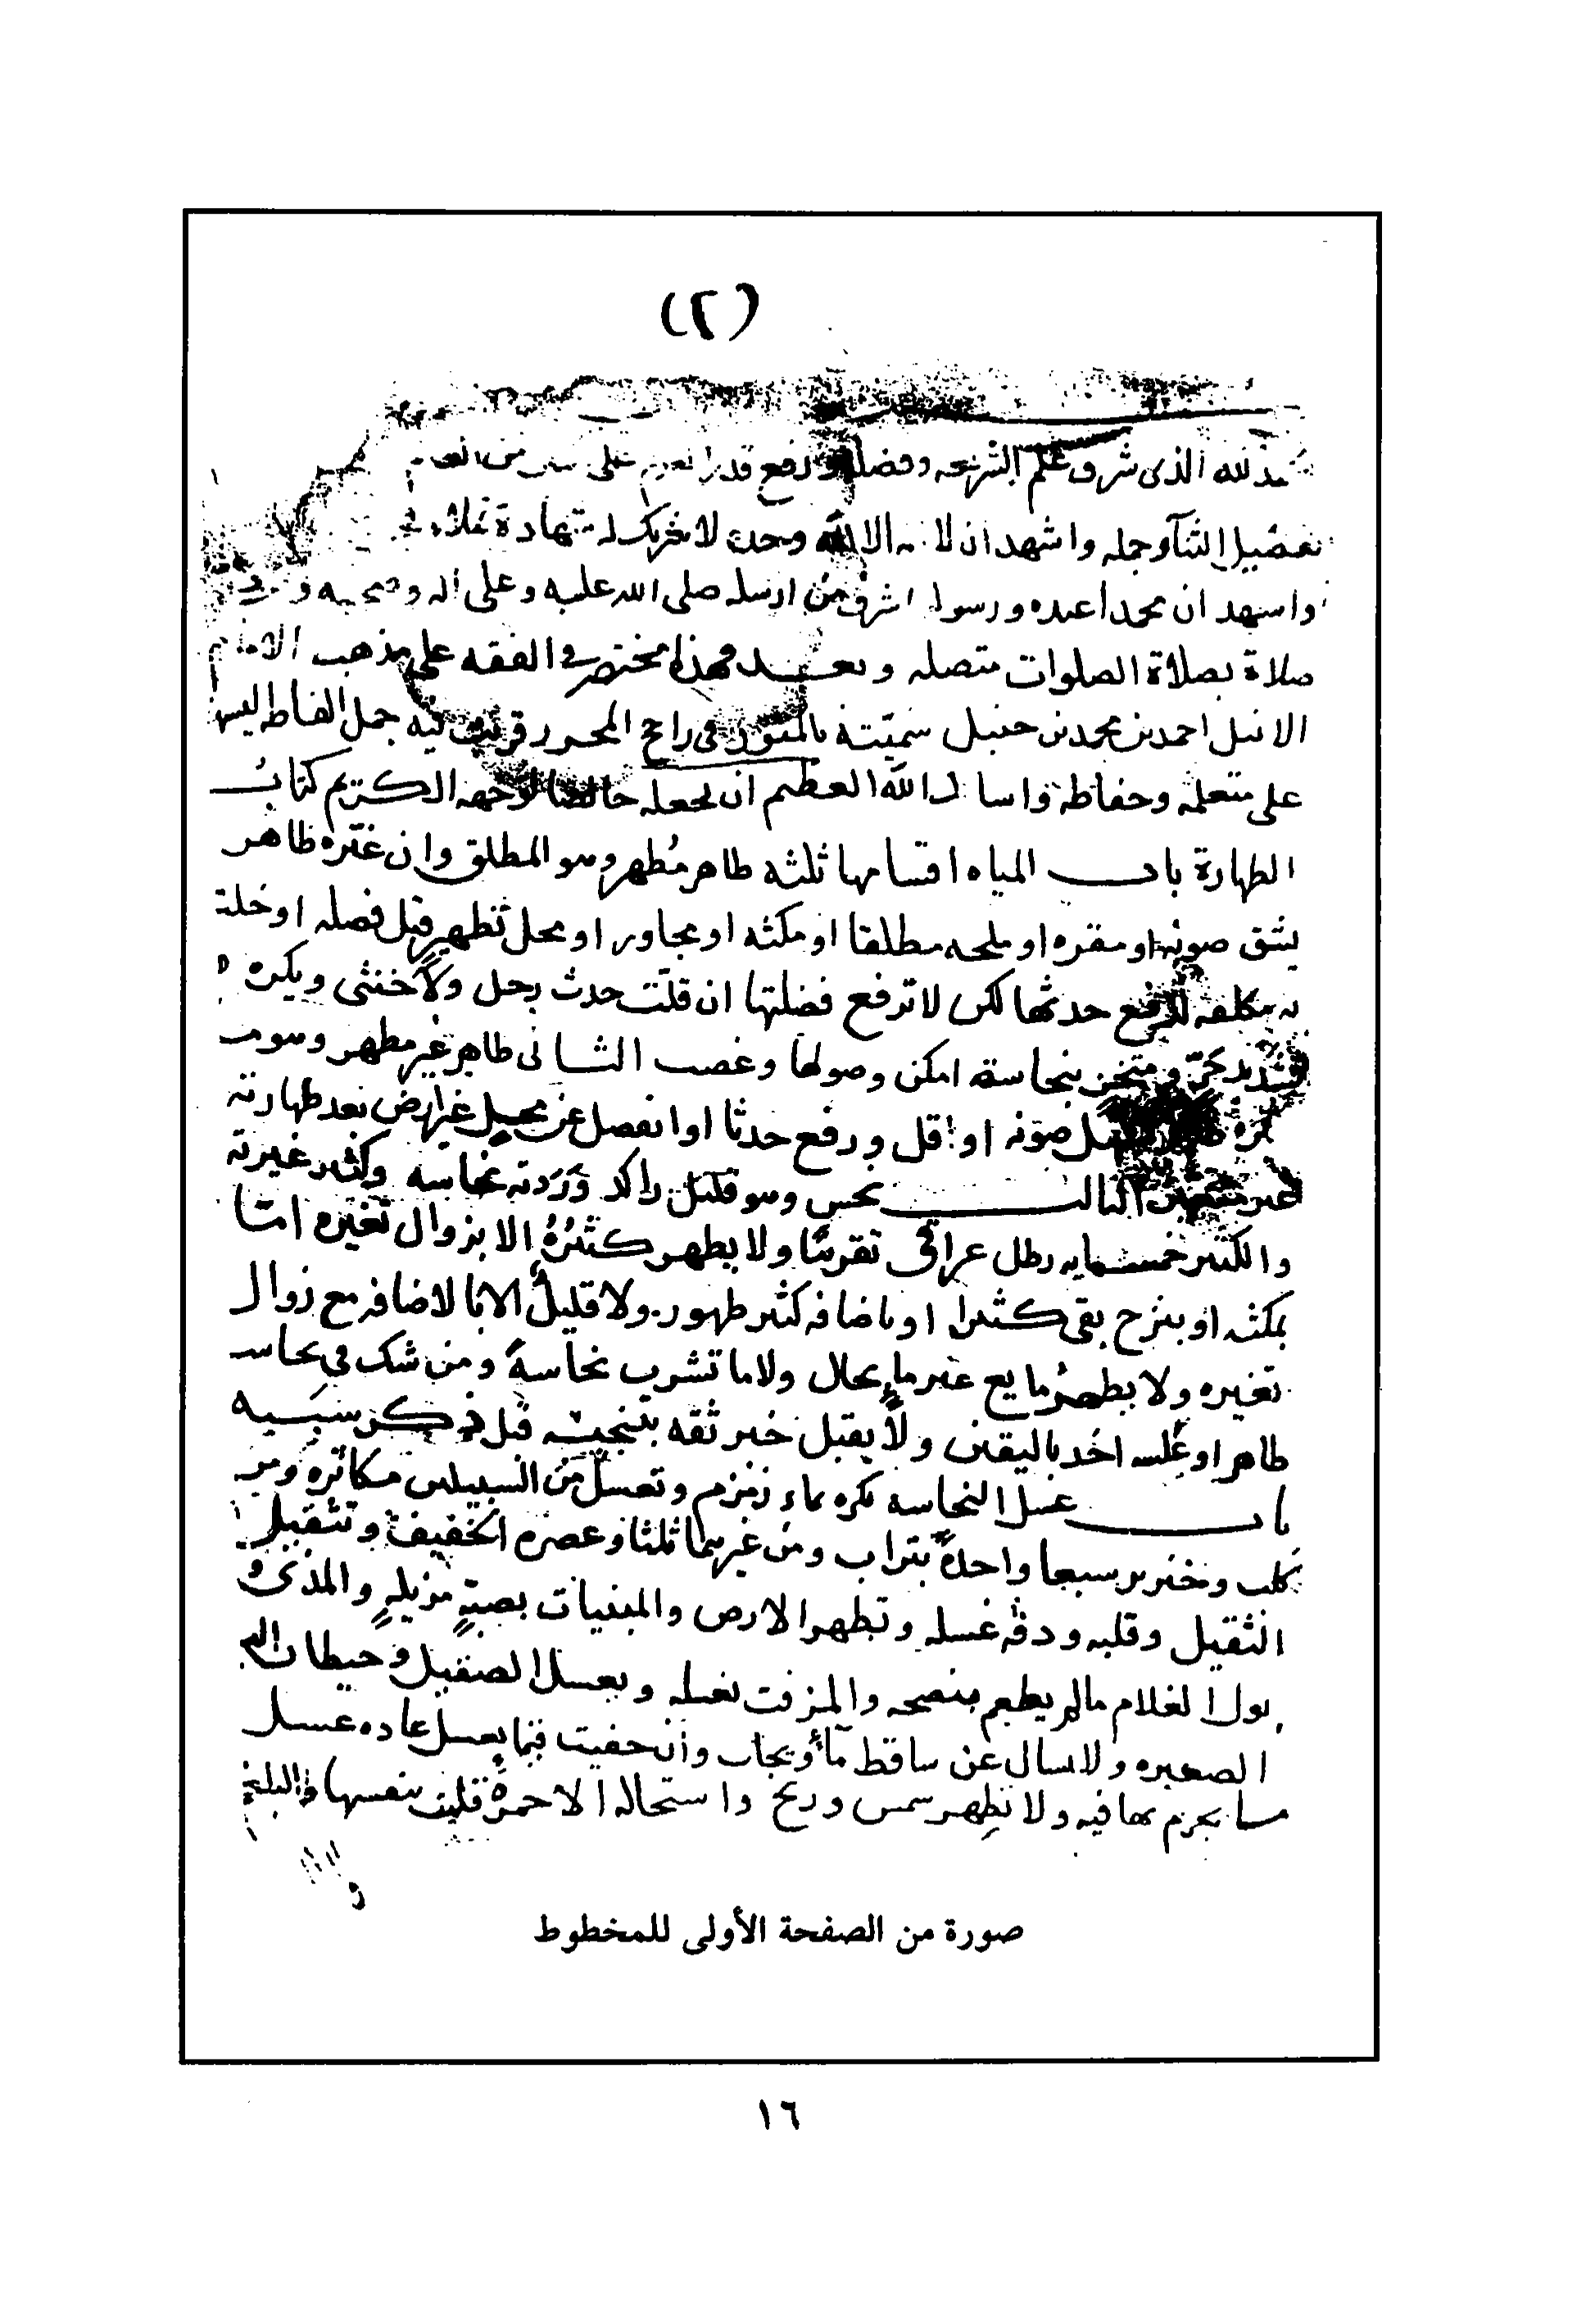 (٢)
لله الذى شرف علم الشريعه وفضله ورفع قدر على
تفصيل الثنا وجمله واشهد ان لا اله الا الله وحده لا شريك له شهادة
واشهد ان محمدا عبده ورسوله اشرف من ارسله صلى الله عليه وعلى اله وصحبه
صلاة بصلاة الصلوات متصله وبعد فهذا مختصر فى الفقه على مذهب الامام
احمد بن محمد بن حنبل سميته بالمنور فى راجح المحرر قربت فيه جمل الفاظه
على متعلمه وحفاظه واسال الله العظيم ان يجعله خالصا لوجهه الكريم كتاب
الطهارة باب المياه اقسامها ثلثه طاهر مطهر وهو المطلق وان غيره طاهر
يشق صونه او مقره او ملحه مطلقا او مكثه او مجاور او محل تطهير قبل فصله او خلت
به مكلفه لرفع حدثها لكن لا ترفع فضلتها ان قلت حدث رجل ولا خنثى ويكره
شديد حر ومتخن بنجاسة امكن وصولها وغصب الثانى طاهر غير مطهر وهو
صونه او قل ورفع حدثا او انفصل عن محل غير ارض بعد طهارته
غير الثالث نجس وهو قليل راكد وردته نجاسه وكثير غيرته
والكثير خمسمايه رطل عراقى تقريبا ولا يطهر كثيره الا بزوال تغيره اما
بمكثه او بنزح بقى كثيرا او باضافه كثير طهور ولا قليله الا بالاضافه مع زوال
تغيره ولا يطهر مايع غير ماء بحال ولا ما تشرب نجاسة ومن شك فى نجاسه
طاهر او عكسه اخذ باليقين ولا يقبل خبر ثقه بتنجيسه قبل ذكر سببه
باب غسل النجاسه يكره بماء زمزم وتغسل من السبيلين مكاثره ومن
كلب وخنزير سبعا واحدة بتراب ومن غيرهما ثلثا وعصره الخفيف وتثقيل
الثقيل وقلبه ودقه غسله وتطهر الارض والمبنيات بصبة مزيلة والمذى و
بول الغلام مالم يطعم بنضحه والمزفت بغسله ويغسل الصقيل وحيطان
الصغيره ولا يسال عن ساقط ماؤه يجاب وان خفيت فيما يغسل عاده غسل
ما يجزم بها فيه ولا تطهر شمس وريح واستحاله الا خمرة قلبت بنفسها
صورة من الصفحة الأولى للمخطوط
١٦